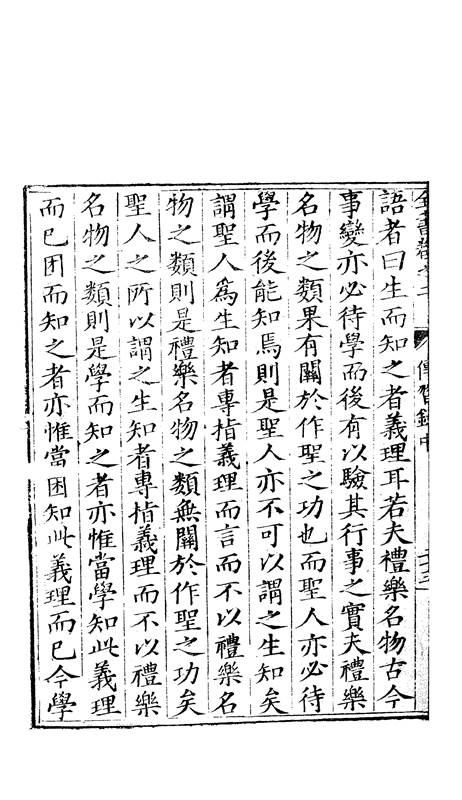 全書卷之二　傳習錄中
語者曰生而知之者義理耳若夫禮樂名物古今
事變亦必待學而後有以驗其行事之實夫禮樂
名物之類果有關於作聖之功也而聖人亦必待
學而後能知焉則是聖人亦不可以謂之生知矣
謂聖人爲生知者專指義理而言而不以禮樂名
物之類則是禮樂名物之類無關於作聖之功矣
聖人之所以謂之生知者專指義理而不以禮樂
名物之類則是學而知之者亦惟當學知此義理
而已困而知之者亦惟當困知此義理而已今學